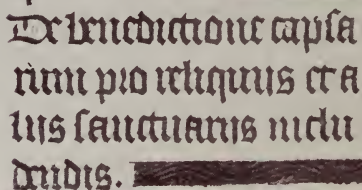 De benedictione capsa
rum pro reliquiis et a
liis sanctuariis inclu
dendis.